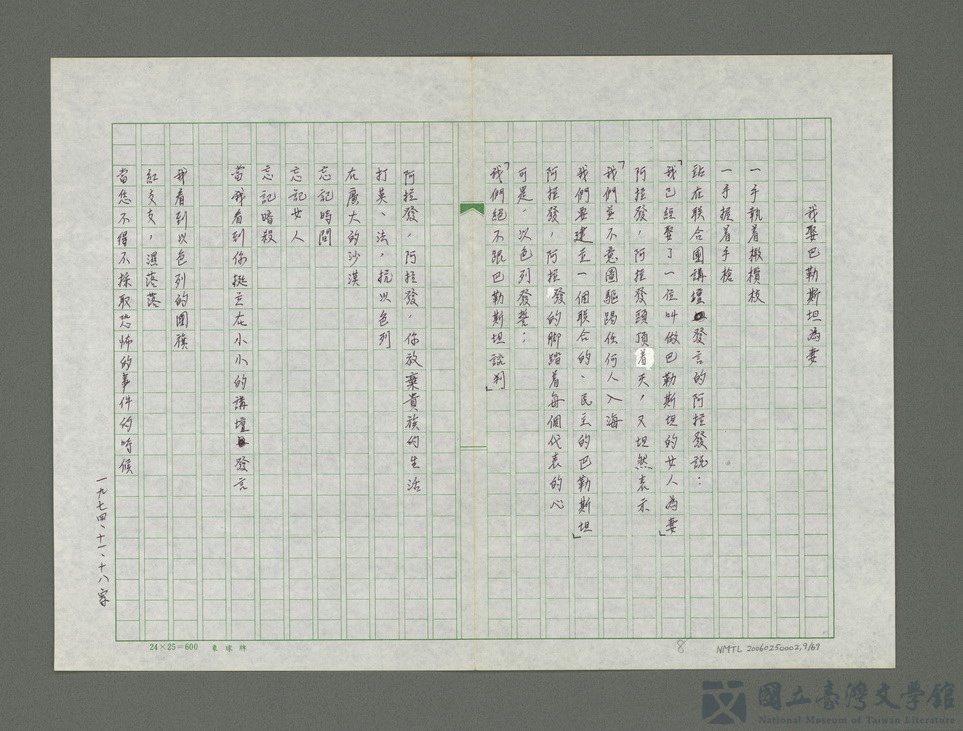 我娶巴勒斯坦為妻
一手執着橄欖枝
一手握着手槍
站在联合國講壇發言的阿拉發說：
「我已經娶了一位叫做巴勒斯坦的女人為妻」
阿拉發，阿拉發頭頂着天，又坦然表示
「我們並不意圖驅踢任何人入海
我們要建立一個联合的、民主的巴勒斯坦」
阿拉發，阿拉發的脚踏着每個代表的心
可是，以色列發誓：
「我們絕不跟巴勒斯坦談判」
阿拉發，阿拉發，你放棄貴族的生活
打英、法，抗以色列
在廣大的沙漠
忘記時間
忘記女人
忘記暗殺
當我看到你挺立在小小的講壇發言
我看到以色列的國旗
紅支支，濕落落
當您不得不採取恐怖的事件的時候
一九七四、十一、十八寫
24×25=600 東球牌
8
NMTL 20060250002,9/67
國立臺灣文學館
National Museum of Taiwan Literature